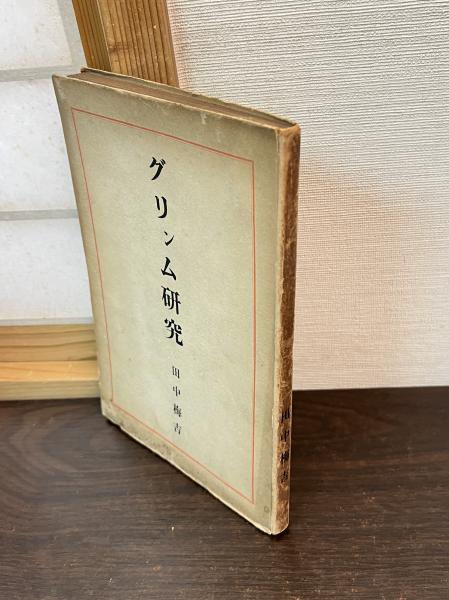 グリンム研究
田中梅吉
田中梅吉